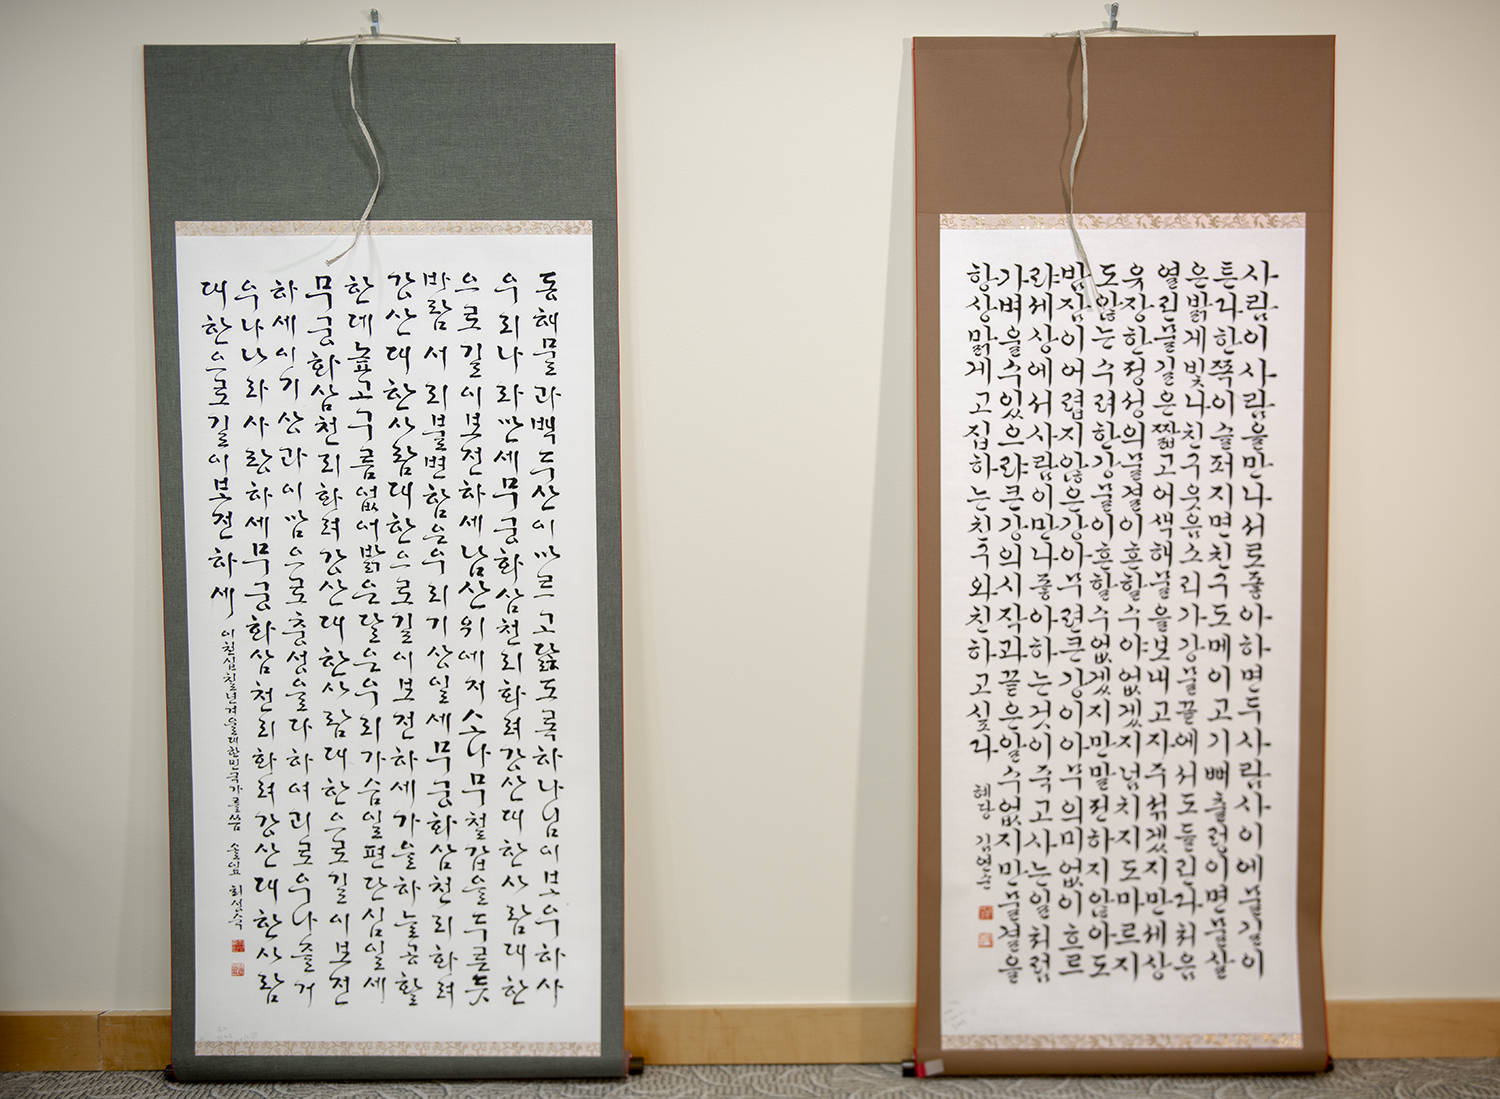 동해물과백두산이마르고닳도록하나님이보우하사
우리나라만세무궁화삼천리화려강산대한사람대한
으로길이보전하세남산위에저소나무철갑을두른듯
바람서리불변함은우리기상일세무궁화삼천리화려
강산대한사람대한으로길이보전하세가을하늘공활
한데높고구름없이밝은달은우리가슴일편단심일세
무궁화삼천리화려강산대한사람대한으로길이보전
하세이기상과이맘으로충성을다하여괴로우나즐거
우나나라사랑하세무궁화삼천리화려강산대한사람
대한으로길이보전하세 이천십칠년겨울대한민국가를씀 최성숙
사람이사람을만나서로좋아하면두사람사이에물길이
튼다한쪽이슬퍼지면친구도메이고기뻐출렁이면물살
은밝게빛나친구웃음소리가강물끝에서도들린다처음
열린물길은짧고어색해물을보내고자주섞겠지만세상
욱장한정성의물결이흔할수야없겠지넘치지도마르지
도않는수려한강물이흔할수없겠지만말전하지않아도
밤짐이어렵지않은강아무련큰강이이무의미없이흐르
랴세상에서사람이만나좋아하는것이죽고사는일처럼
가벼울수있으랴큰강의시작과끝은알수없지만물결을
항상맑게고집하는친구와친하고싶다 혜당 김연순